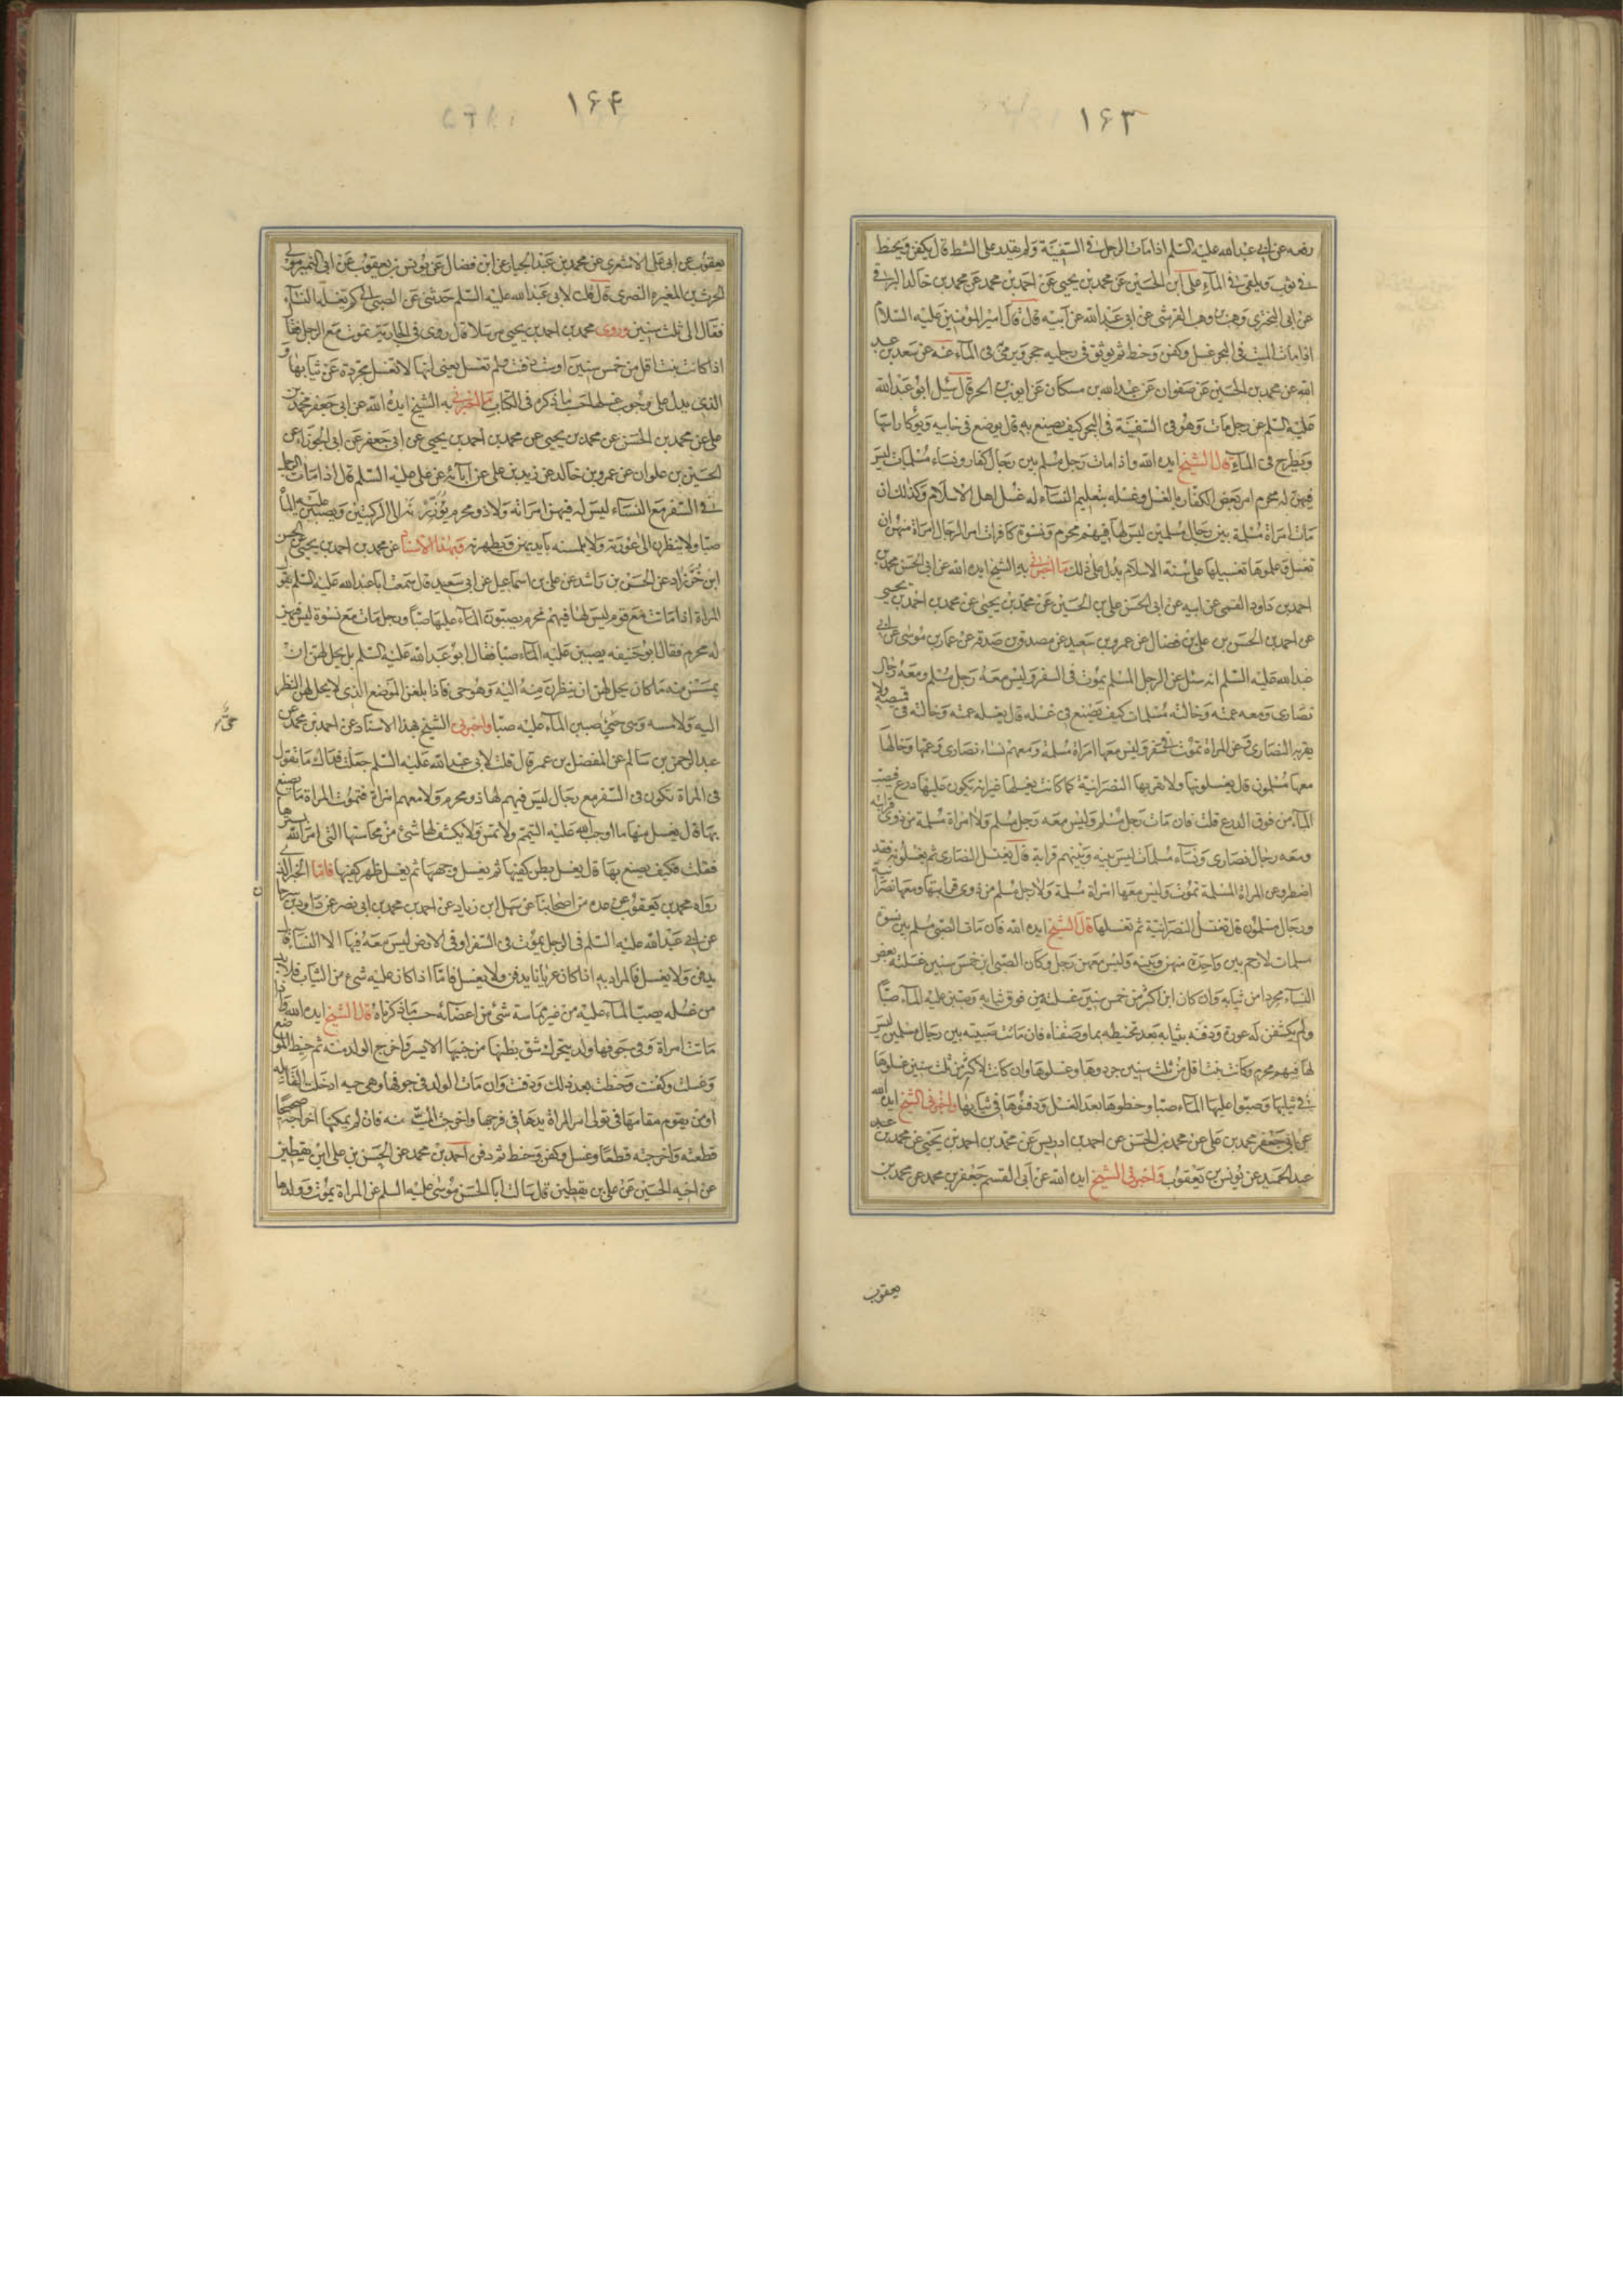 ۱۶۳
رفعه عن ابي عبد الله عليه السلم اذا مات الرجل في السفينة ولم يقدر على الشط قال يكفن ويحنط
في ثوب ويلقى في الماء علي بن الحسين عن محمد بن يحيى عن احمد بن محمد عن محمد بن خالد البرقي
عن ابي البختري وهب بن وهب القرشي عن ابي عبد الله عن ابيه قال قال امير المؤمنين عليه السلام
اذا مات الميت في البحر غسل وكفن وحنط ثم يوثق في رجليه حجر ويرمى في الماء عنه عن سعد بن عبد
الله عن محمد بن الحسين عن صفوان عن عبد الله بن مسكان عن ايوب بن الحر قال سئل ابو عبد الله
عليه السلم عن رجل مات وهو في السفينة في البحر كيف يصنع به قال يوضع في خابيه ويوكأ راسها
ويطرح في الماء قال الشيخ ايده الله واذا مات رجل مسلم بين رجال كفار ونساء مسلمات ليس
فيهن له محرم امر بعض الكفار بالغسل وغسله بتعليم النساء له غسل اهل الاسلام وكذلك ان
ماتت امراة مسلمة بين رجال مسلمين ليس لها فيهم محرم ونسوة كافرات امر الرجال امراة منهن ان
تغسل وعلموها تغسيلها على سنة الاسلام يدل على ذلك ما اخبرني به الشيخ ايده الله عن ابي الحسن محمد بن
احمد بن داود القمي عن ابيه عن ابي الحسن علي بن الحسين عن محمد بن يحيى عن محمد بن احمد بن يحيى
عن احمد بن الحسن بن علي بن فضال عن عمرو بن سعيد عن مصدق بن صدقه عن عمار بن موسى عن ابي
عبد الله عليه السلم انه سئل عن الرجل المسلم يموت في السفر وليس معه رجل مسلم ومعه رجال
نصارى ومعه عمته وخالته مسلمات كيف يصنع في غسله قال يغسله عمته وخالته في قميصه ولا
يقربه النصارى وعن المراة تموت في سفر وليس معها امراة مسلمة ومعهم نساء نصارى وعمها وخالها
معها مسلمون قال يغسلونها ولا تقربها النصرانية كما كانت يغسلها غير انه يكون عليها درع فيصب
الماء من فوق الدرع قلت فان مات رجل مسلم وليس معه رجل مسلم ولا امراة مسلمة من ذوي قرابته
ومعه رجال نصارى ونساء مسلمات ليس بينه وبينهم قرابة قال يغتسل النصارى ثم يغسلونه فقد
اضطر وعن المراة المسلمة تموت وليس معها امراة مسلمة ولا رجل مسلم من ذوي قرابتها ومعها نصرانية
ورجال مسلمون قال تغتسل النصرانية ثم تغسلها قال الشيخ ايده الله فان مات الصبي مسلم بين نسوة
مسلمات لا رحم بين واحدة منهن وبينه وليس معهن رجل وكان الصبي ابن خمس سنين غسلته بعض
النساء مجردا من ثيابه وان كان ابن اكثر من خمس سنين غسلنه من فوق ثيابه وصببن عليه الماء صبا
ولم يكشفن له عورة ودفنه بثيابه بعد تحنيطه بما وصفناه فان ماتت صبية بين رجال مسلمين ليس
لها فيهم محرم وكانت بنتا اقل من ثلث سنين جردوها وغسلوها وان كانت لاكثر من ثلث سنين غسلوها
في ثيابها وصبوا عليها الماء صبا وحنطوها بعد الغسل ودفنوها في ثيابها واخبرني الشيخ ايده الله
عن ابي جعفر محمد بن علي عن محمد بن الحسن عن احمد بن ادريس عن محمد بن احمد بن يحيى عن محمد بن
عبد الحميد عن يونس بن يعقوب واخبرني الشيخ ايده الله عن ابي القسم جعفر بن محمد عن محمد بن
يعقوب
۱۶۴
يعقوب عن ابي علي الاشعري عن محمد بن عبد الجبار عن ابن فضال عن يونس بن يعقوب عن ابي النمير مولى
الحرث بن المغيره النصري قال قلت لابي عبد الله عليه السلم حدثني عن الصبي الى كم تغسله النساء
فقال الى ثلث سنين وروى محمد بن احمد بن يحيى مرسلا قال روى في الجارية تموت مع الرجل فقال
اذا كانت بنت اقل من خمس سنين او ست دفنت ولم تغسل يعني انها لا تغسل مجردة عن ثيابها و
الذي يدل على وجوب غسلها حسب ما ذكره في الكتاب ما اخبرني به الشيخ ايده الله عن ابي جعفر محمد بن
علي عن محمد بن الحسن عن محمد بن يحيى عن محمد بن احمد بن يحيى عن ابي جعفر عن ابي الجوزاء عن
الحسين بن علوان عن عمرو بن خالد عن زيد بن علي عن آبائه عن علي عليه السلم قال اذا مات الرجل
في السفر مع النساء ليس له فيهن امراته ولا ذو محرم يؤزرنه الى الركبتين ويصببن عليه الماء
صبا ولا ينظرن الى عورته ولا يلمسنه بايديهن ويطهرنه وبهذا الاسناد عن محمد بن احمد بن يحيى عن الحسن
ابن خرزاد عن الحسن بن راشد عن علي بن اسماعيل عن ابي سعيد قال سمعت ابا عبد الله عليه السلم يقول
المراة اذا ماتت مع قوم ليس لها فيهم محرم يصبون الماء عليها صبا ورجل مات مع نسوة ليس فيهن
له محرم فقال ابو حنيفه يصببن عليه الماء صبا فقال ابو عبد الله عليه السلم بل يحل لهن ان
يمسسن منه ما كان يحل لهن ان ينظرن منه اليه وهو حي فاذا بلغن الموضع الذي لا يحل لهن النظر
اليه ولا مسه وهو حي صببن الماء عليه صبا واخبرني الشيخ بهذا الاسناد عن احمد بن محمد عن
عبد الرحمن بن سالم عن المفضل بن عمر قال قلت لابي عبد الله عليه السلم جعلت فداك ما تقول
في المراة تكون في السفر مع رجال ليس فيهم لها ذو محرم ولا معهم امراة فتموت المراة ما يصنع
بها قال يغسل منها ما اوجب الله عليه التيمم ولا تمس ولا يكشف لها شئ من محاسنها التي امر الله بسترها
فقلت فكيف يصنع بها قال يغسل بطن كفيها ثم يغسل وجهها ثم يغسل ظهر كفيها فاما الخبر الذي
رواه محمد بن يعقوب عن عده من اصحابنا عن سهل ابن زياد عن احمد بن محمد بن ابي نصر عن داود بن سرحان
عن ابي عبد الله عليه السلم في الرجل يموت في السفر او في الارض ليس معه فيها الا النساء قال
يدفن ولا يغسل فالمراد به اذا كان عريانا يدفن ولا يغسل فاما اذا كان عليه شئ من الثياب فلا بد
من غسله يصب الماء عليه من غير مماسة شئ من اعضائه حسب ما ذكرناه قال الشيخ ايده الله فاذا
ماتت امراة وفي جوفها ولد يتحرك شق بطنها من جنبها الايسر واخرج الولد منه ثم خيط الموضع
وغسلت وكفنت وحنطت بعد ذلك ودفنت وان مات الولد في جوفها وهي حيه ادخلت القابله
او من يقوم مقامها في تولى امر المراة يدها في فرجها واخرجت الميت منه فان لم يمكنها اخراجه صحيحا
قطعته واخرجته قطعا وغسل وكفن وحنط ثم دفن احمد بن محمد عن الحسن بن علي ابن يقطين
عن اخيه الحسين عن علي بن يقطين قال سالت ابا الحسن موسى عليه السلم عن المراة تموت وولدها